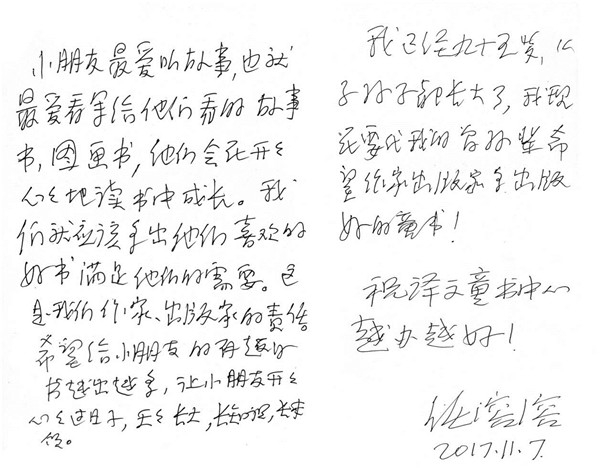 小朋友最爱听故事,也就
最爱看写给他们看的故事
书,图画书,他们会在开开
心心地读书中成长。我
们就应该多出他们喜欢的
好书满足他们的需要。这
是我们作家、出版家的责任
希望给小朋友的有趣的
书越出越多,让小朋友开开
心心过日子,天天长大,长知识,长本
领。
我已经九十五岁,
子孙子都长大了,我现
还要代我的曾孙辈希
望作家出版家多出版
好的童书!
祝译文童书中心
越办越好!
任溶溶
2017.11.7.